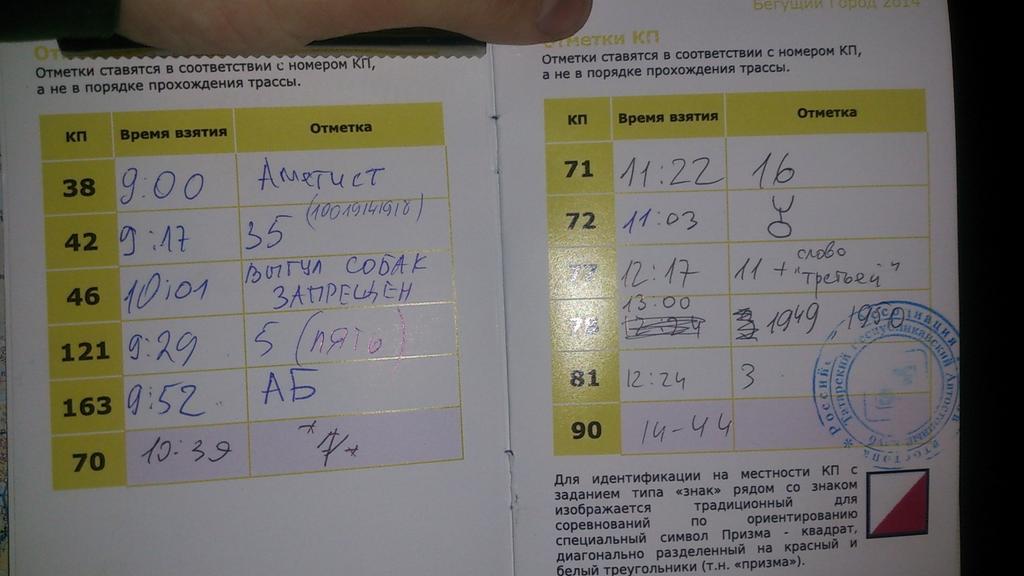 Отметки ставятся в соответствии с номером КП,
а не в порядке прохождения трассы.
КП Время взятия Отметка
38 9:00 Аметист
42 9:17 35 (10019141918)
46 10:01 ВЫГУЛ СОБАК
ЗАПРЕЩЕН
121 9:29 5 (ПЯТЬ)
163 9:52 АБ
70 10:39 *7*
Бегущий Город 2014
Отметки КП
Отметки ставятся в соответствии с номером КП,
а не в порядке прохождения трассы.
КП Время взятия Отметка
71 11:22 16
72 11:03
12:17 11 + слово
"третьей"
13:00 1949 1950
81 12:24 3
90 14-44
Для идентификации на местности КП с
заданием типа «знак» рядом со знаком
изображается традиционный для
соревнований по ориентированию
специальный символ Призма - квадрат,
диагонально разделенный на красный и
белый треугольники (т.н. «призма»).